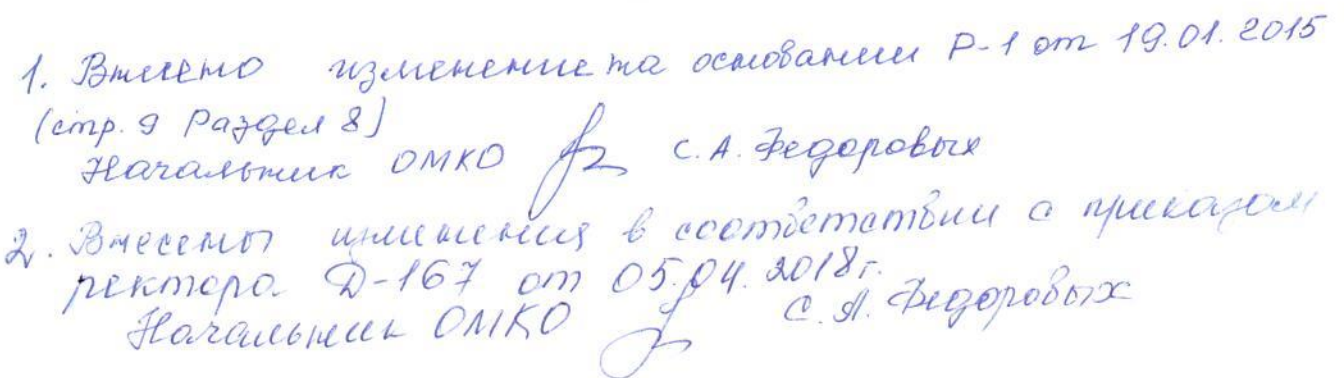 1. Внесено изменение на основании Р-1 от 19.01.2015
(стр. 9 Раздел 8)
Начальник ОМКО С.А. Федоровых
2. Внесены изменения в соответствии с приказом
ректора Д-167 от 05.04.2018г.
Начальник ОМКО С.А. Федоровых